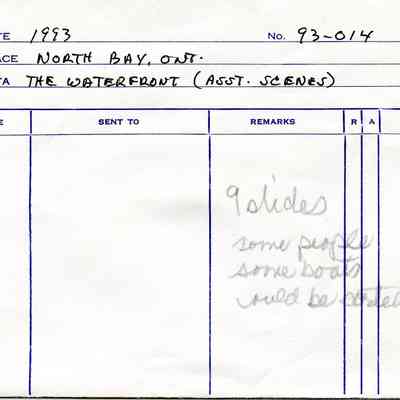 TE 1993 No. 93-014
ACE NORTH BAY, ONT.
TA THE WATERFRONT (ASST. SCENES)
E SENT TO REMARKS R A
9 slides
some people
some boats
could be